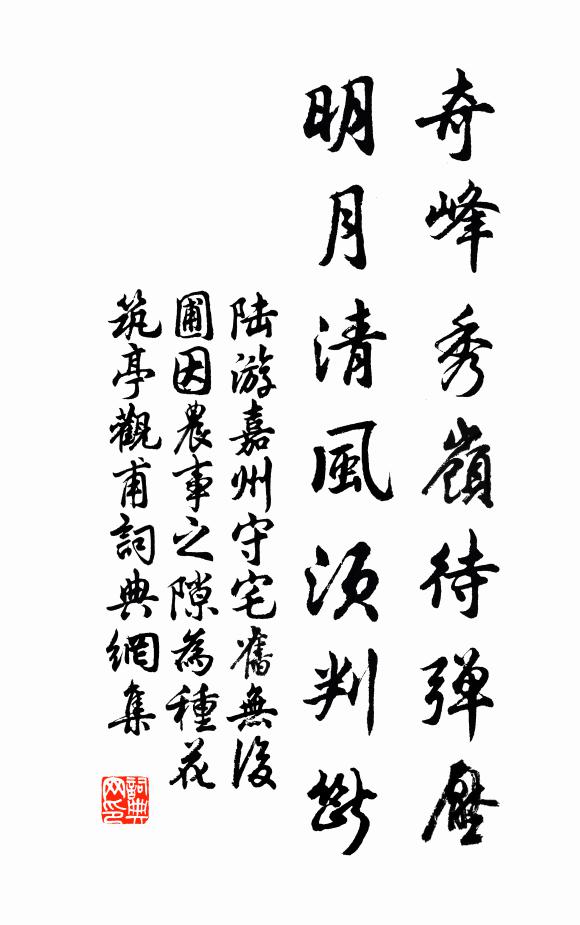 奇峰秀嶺待弹壓
明月清風須判斷
陆游嘉州守宅舊無後
圃因農事之隙為種花
筑亭觀甫詞典網集
詞典网印